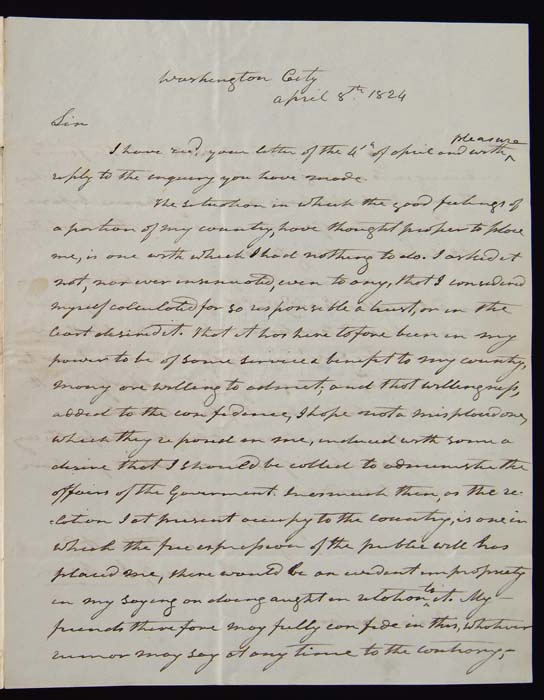 Washington City
April 8th 1824
Sir
pleasure
I have recd. your letter of the 4th of april and with ^
reply to the enquiry you have made.
The situation in which the good feelings of
a portion of my country, have thought proper to place
me, is one with which I had nothing to do. I asked it
not, nor ever insinuated, even to any, that I considered
myself calculated for so responsible a trust, or in the
least desired it. That it has heretofore been in my
power to be of some service & benefit to my country,
many are willing to admit; and that willingness,
added to the confidence, I hope not a misplaced one,
which they reposed in me, induced with some a
desire that I should be called to administer the
affairs of the Government. Inasmuch then, as the re-
-lation I at present occupy to the country, is one in
which the free expression of the public will has
placed me, there would be an evident impropriety
to
in my saying or doing aught in relation ^ it. My
friends therefore may fully confide in this, whatever
rumor may say at any time to the contrary,-